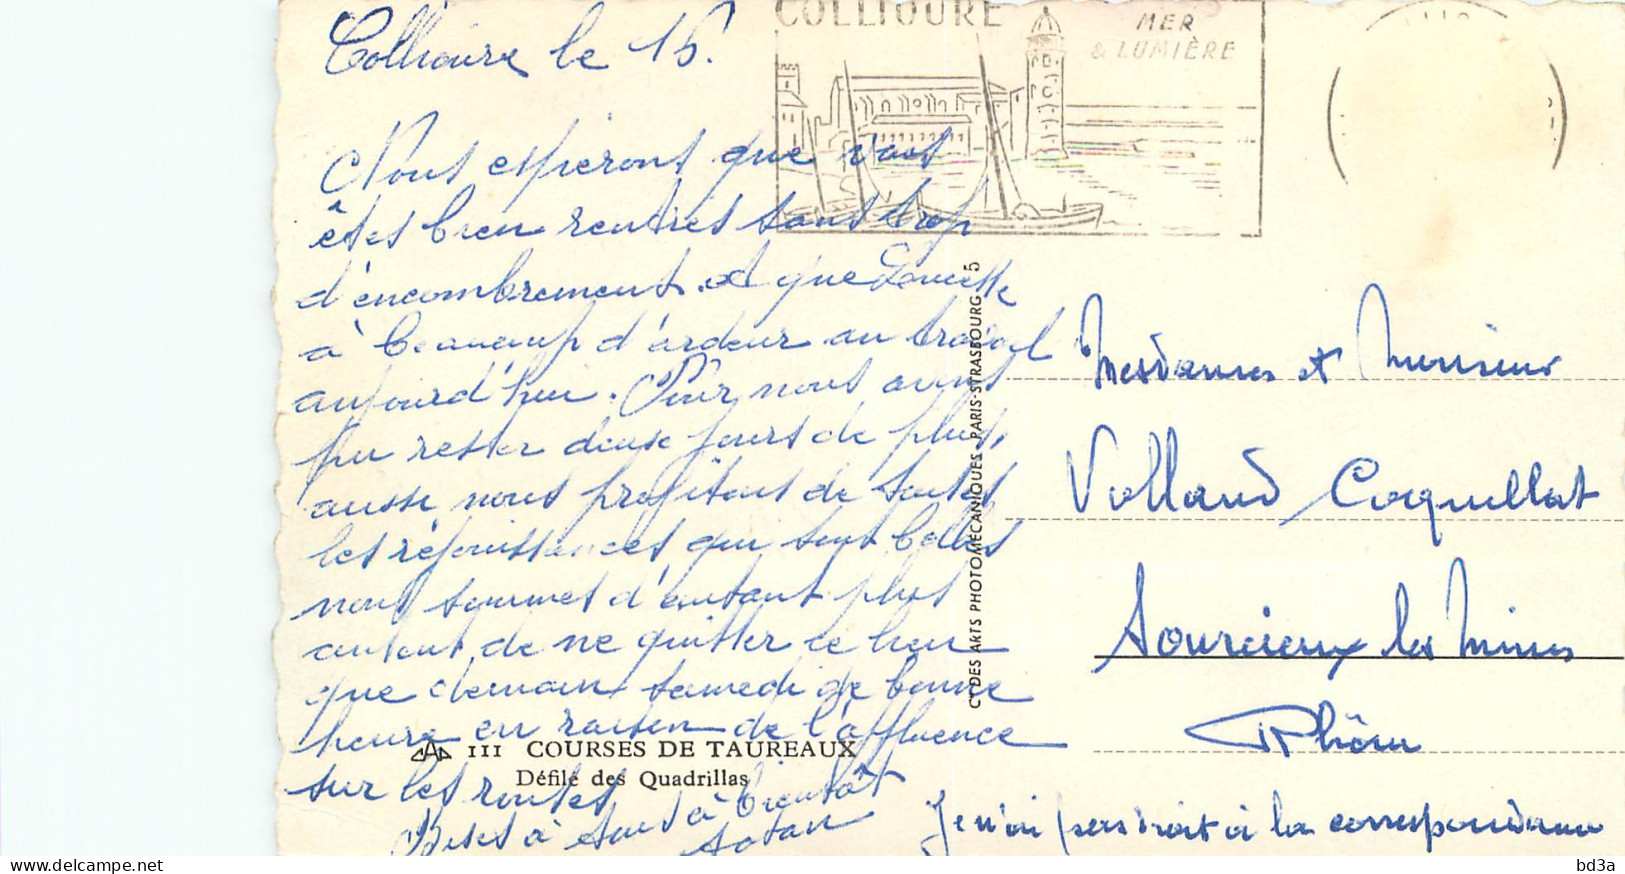 Collioure le 15.
COLLIOURE
MER
& LUMIÈRE
Nous espérons que vous
êtes bien rentrés sans trop
d'encombrement et que
à beaucoup d'ardeur au travail
aujourd'hui. Pour nous avons
pu rester deux jours de plus,
aussi nous profitons de toutes
les réjouissances qui sont belles
nous sommes d'autant plus
de ne quitter ce lieu
que demain samedi de bonne
heure en raison de l'affluence
sur les routes
Bises à tous à bientôt
C^ie DES ARTS PHOTOMÉCANIQUES PARIS-STRASBOURG 5
111 COURSES DE TAUREAUX
Défilé des Quadrillas
Mesdames et Monsieur
Volland Coquillat
Sourcieux les Mines
Rhône
Je n'ai pas droit à la correspondance
bd3a